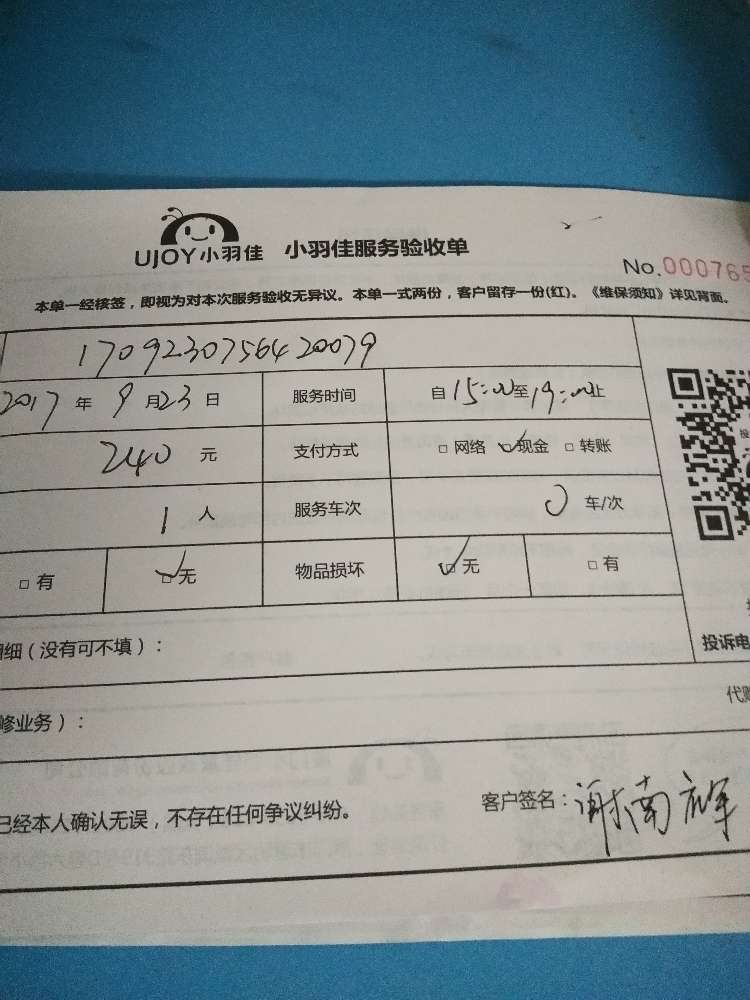 UJOY小羽佳 小羽佳服务验收单
No.000765
本单一经核签，即视为对本次服务验收无异议。本单一式两份，客户留存一份(红)。《维保须知》详见背面。
1709230756420079
2017 年 9 月 23 日 服务时间 自 15:00 至 19:00 止
240 元 支付方式 □ 网络 ☑ 现金 □ 转账
1 人 服务车次 0 车/次
□ 有 ☑ 无 物品损坏 ☑ 无 □ 有
细（没有可不填）：
投诉电
修业务）：
代购
已经本人确认无误，不存在任何争议纠纷。
客户签名：谢南